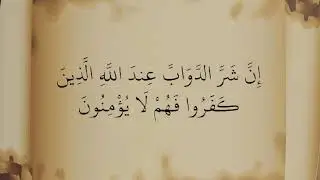 إِنَّ شَرَّ الدَّوَابِّ عِندَ اللَّهِ الَّذِينَ
كَفَرُوا فَهُمْ لَا يُؤْمِنُونَ